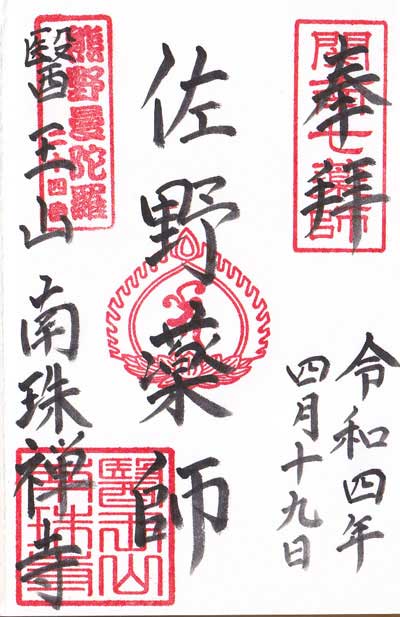 奉拝
令和四年
四月十九日
佐野薬師
熊野曼陀羅
醫王山 南珠禅寺
醫王山
南珠寺